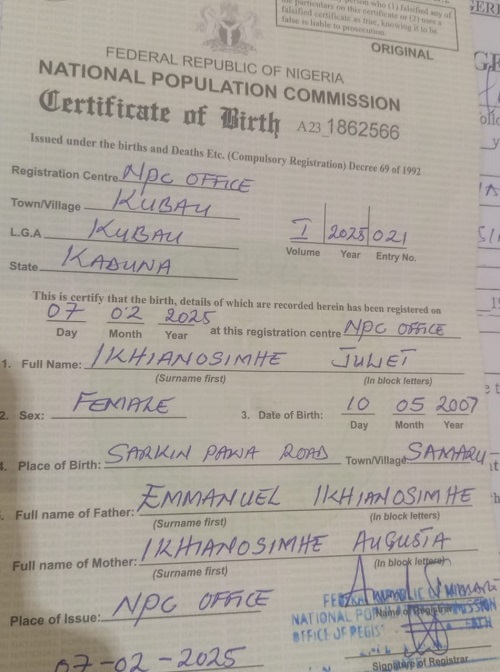 person who (1) falsified any of
the particulars on this certificate or (2) uses a
falsified certificate as true, knowing it to be
false is liable to prosecution.
ORIGINAL
FEDERAL REPUBLIC OF NIGERIA
NATIONAL POPULATION COMMISSION
Certificate of Birth A23 1862566
Issued under the births and Deaths Etc. (Compulsory Registration) Decree 69 of 1992
Registration Centre NPC OFFICE
Town/Village KUBAU
L.G.A KUBAU
I 2025 021
Volume Year Entry No.
State KADUNA
This is certify that the birth, details of which are recorded herein has been registered on
07 02 2025 at this registration centre NPC OFFICE
Day Month Year
1. Full Name: IKHIANOSIMHE JULIET
(Surname first) (In block letters)
2. Sex: FEMALE 3. Date of Birth: 10 05 2007
Day Month Year
Place of Birth: SARKIN PAWA ROAD Town/Village SAMARU
Full name of Father: EMMANUEL IKHIANOSIMHE
(Surname first) (In block letters)
Full name of Mother: IKHIANOSIMHE AUGUSTA
(Surname first) (In block letters)
Place of Issue: NPC OFFICE
Name of Registrar
NATIONAL
OFFICE OF
07-02-2025
Signature of Registrar